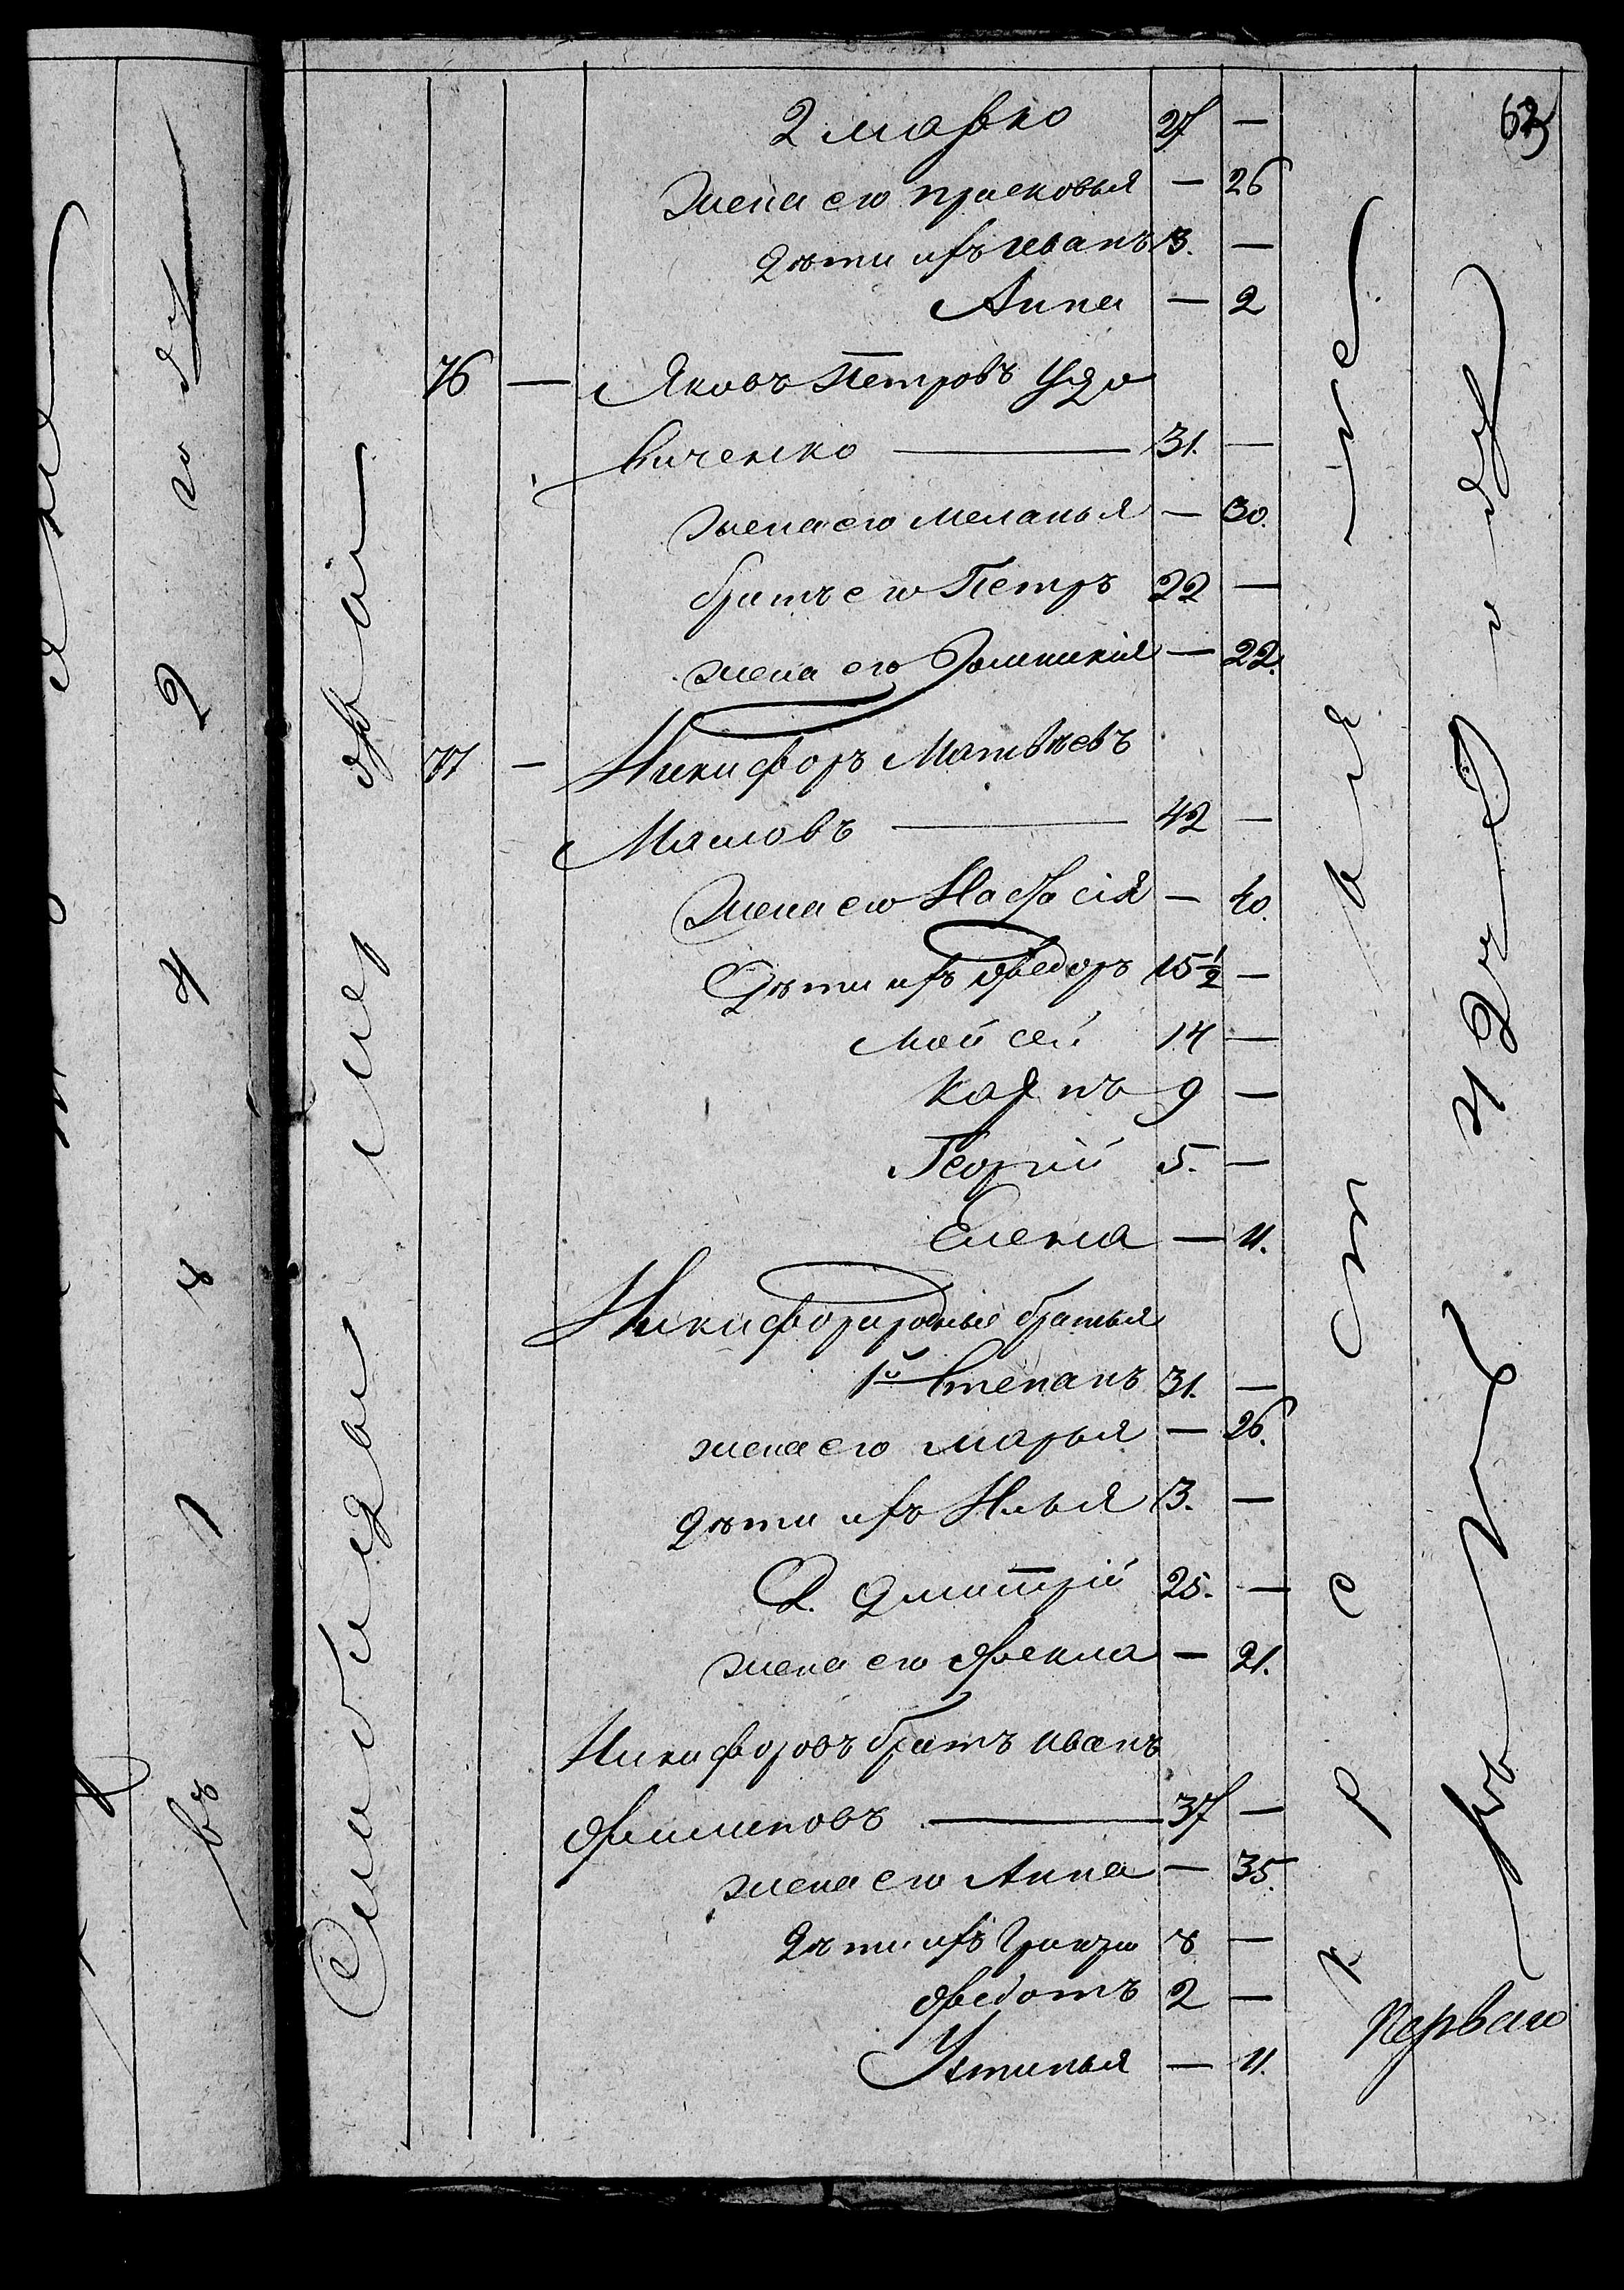 63
2 Марко 27 —
жена его Прасковья — 26
дѣти ихъ Иванъ 3. —
Анна — 2
76 — Яковъ Петровъ Удо
виченко — 31. —
жена его Меланья — 30.
братъ его Петръ 22 —
жена его Домникія — 22.
77 — Никифоръ Матвѣевъ
Масловъ — 42 —
жена его Настасія — 40.
Дѣти ихъ Федоръ 15 1/2 —
Мойсей 14 —
Карпъ 9 —
Георгій 5. —
Елена — 11.
Никифора родные братья
1й Степанъ 31. —
жена его Марья — 26.
дѣти ихъ Илья 3. —
2. Дмитрій 25. —
жена его Фекла — 21.
Никифоровъ братъ Иванъ
Филиповъ — 37 —
жена его Анна — 35.
дѣти ихъ 8 —
Федотъ 2 —
Устинья — 11.
Перваго
въ 1 8 4 2 году